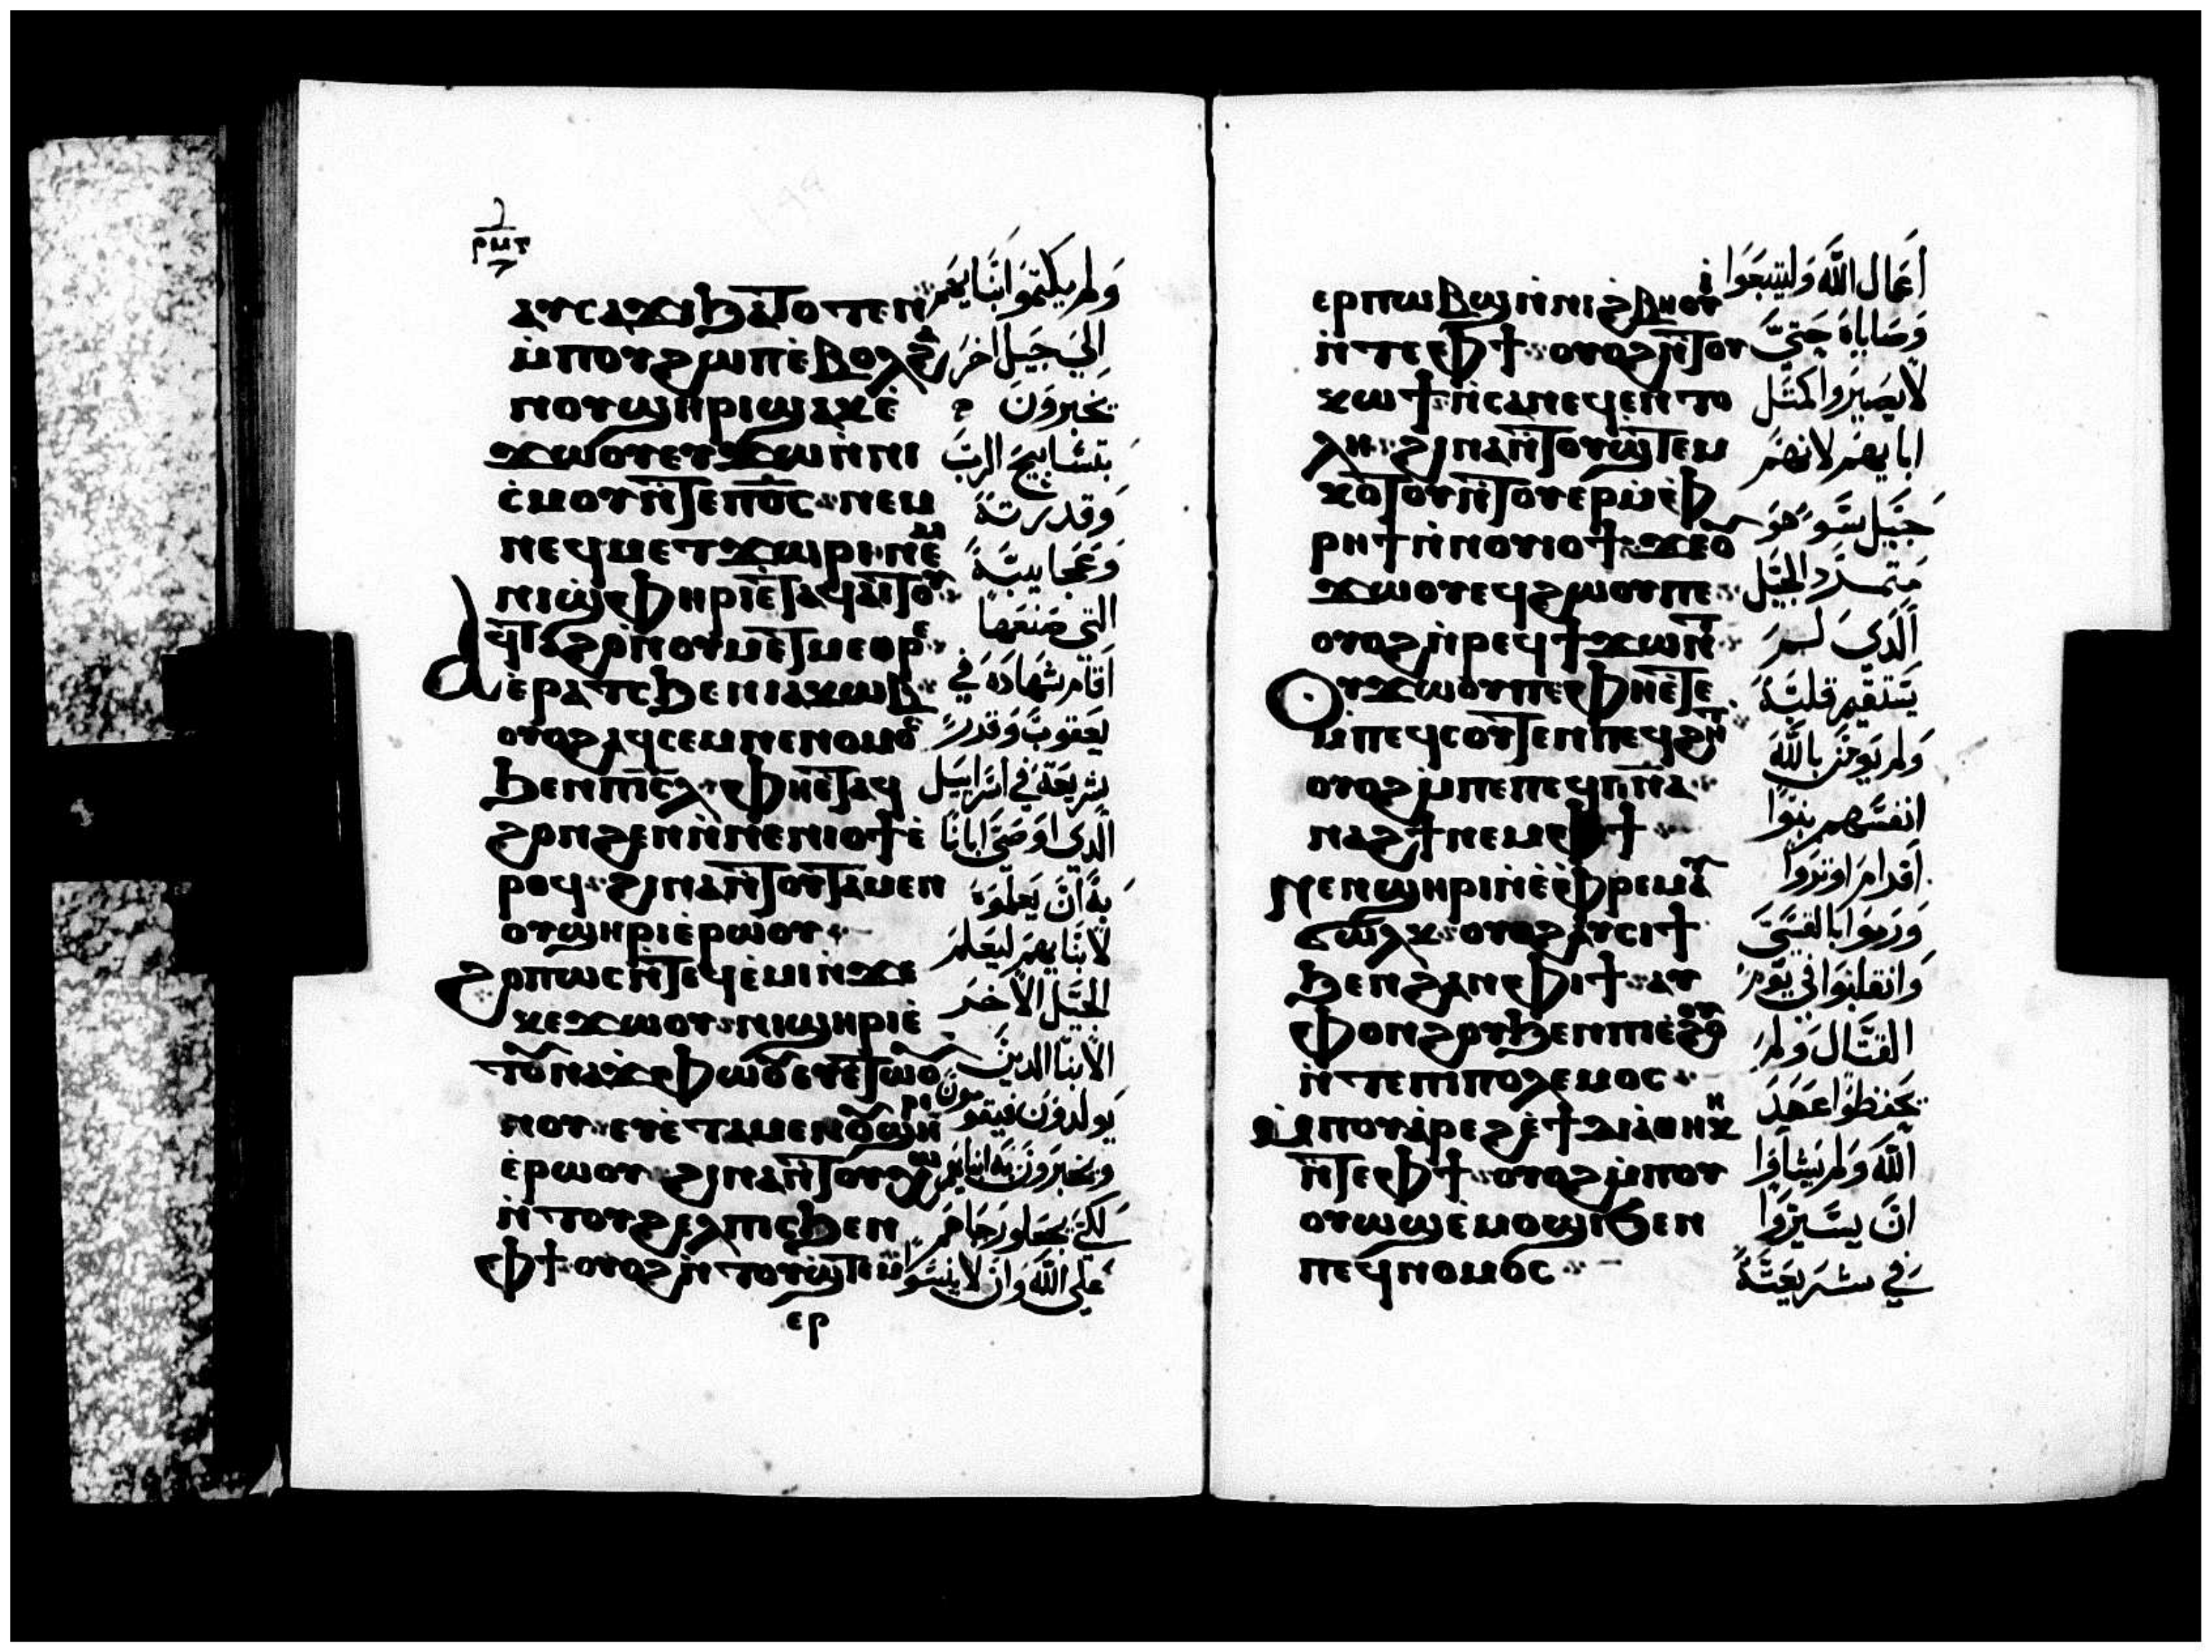 ⲣⲙⲋ
ⲁⲩⲥⲁϫⲓ ϧⲁⲧⲟⲧⲉⲛ
ⲙ̇ⲡⲟⲩϩⲱⲡ ⲉ̇ⲃⲟⲗ ϩⲁ
ⲛⲟⲩϣⲏⲣⲓ ϣⲁ ⲕⲉ
ϫⲱⲟⲩ ⲉⲩϫⲱ ⲛ̇ⲛⲓ
ⲥ̇ⲙⲟⲩ ⲛ̇ⲧⲉ ⲡⲟ̅ⲥ̅ ⲛⲉⲙ
ⲛⲉϥⲙⲉⲧϫⲱⲣⲓ ⲛⲉⲙ
ⲛⲓϣⲫⲏⲣⲓ ⲉ̇ⲧⲁϥⲁⲓⲧⲟⲩ
ⲁϥⲧⲁϩⲟ ⲛ̇ⲟⲩⲙⲉⲧⲙⲉⲑⲣⲉ
ⲉ̇ⲣⲁⲧⲥ ϧⲉⲛ ⲓⲁⲕⲱⲃ
ⲟⲩⲟϩ ⲁϥⲥⲉⲙⲛⲉ ⲛⲟⲙⲟⲥ
ϧⲉⲛ ⲡⲓⲥ̅ⲗ̅ ⲫⲏⲉ̇ⲧⲁϥ
ϩⲟⲛϩⲉⲛ ⲛ̇ⲛⲉⲛⲓⲟϯ ⲉ̇
ⲣⲟϥ ϩⲓⲛⲁ ⲛ̇ⲧⲟⲩⲧⲁⲙⲉ ⲛ
ⲟⲩϣⲏⲣⲓ ⲉ̇ⲣⲱⲟⲩ
ϩⲟⲡⲱⲥ ⲛ̇ⲧⲉϥⲉ̇ⲙⲓ ⲛ̇ϫⲉ
ⲕⲉϫⲱⲟⲩ ⲛⲓϣⲏⲣⲓ ⲉ̇
ⲧⲟⲩⲛⲁϫⲫⲱⲟⲩ ⲉⲩⲉ̇ⲧⲱⲟⲩ
ⲛⲟⲩ ⲉⲩⲉ̇ⲧⲁⲙⲉ ⲛⲟⲩϣⲏⲣⲓ
ⲉ̇ⲣⲱⲟⲩ ϩⲓⲛⲁ ⲛ̇ⲧⲟⲩⲭⲱ
ⲛ̇ⲧⲟⲩϩⲉⲗⲡⲓⲥ ϧⲉⲛ
ⲫϯ ⲟⲩⲟϩ ⲛ̇ⲧⲟⲩϣⲧⲉⲙ
ⲉⲣ
ولم يكتموا ابنايهم
الي جيل اخر
يخبرون
بتسابيح الرب
وقدرته
وعجايبه
التي صنعها
اقام شهاده في
يعقوب وقدر
شريعة في اسراييل
الذي اوصي ابانا
به ان يعلموه
لابنايهم ليعلم
الجيل الاخر
الابنا الذين
يولدون فيقومون
ويخبرون به ابنايهم
لكي يجعلوا رجاهم
علي الله وان لا ينسوا
ⲉⲣⲡⲱⲃϣ ⲛ̇ⲛⲓϩⲃⲏⲟⲩⲓ̇
ⲛ̇ⲧⲉ ⲫϯ ⲟⲩⲟϩ ⲛ̇ⲧⲟⲩ
ⲕⲱϯ ⲛ̇ⲥⲁ ⲛⲉϥⲉⲛⲧⲟ
ⲗⲏ ϩⲓⲛⲁ ⲛ̇ⲧⲟⲩϣⲧⲉⲙ
ⲕⲟⲧⲟⲩ ⲛ̇ⲧⲟⲩⲉⲣ ⲙ̇ⲫ
ⲣⲏϯ ⲛ̇ⲛⲟⲩⲓⲟϯ ϫⲉ ⲟⲩ
ϫⲱⲟⲩ ⲉϥϩⲱⲟⲩ ⲡⲉ
ⲟⲩⲟϩ ⲛ̇ⲣⲉϥϯϫⲱⲛⲧ
ⲟⲩϫⲱⲟⲩ ⲡⲉ ⲫⲏⲉ̇ⲧⲉ
ⲙ̇ⲡⲉϥⲥⲟⲩⲧⲉⲛ ⲡⲉϥϩⲏⲧ
ⲟⲩⲟϩ ⲙ̇ⲡⲉ ⲡⲉϥⲡ̅ⲛ̅ⲁ̅
ⲛⲁϩϯ ⲛⲉⲙ ⲫϯ
ⲛⲉⲛϣⲏⲣⲓ ⲛ̇ⲉ̇ⲫⲣⲉⲙ ⲁⲩ
ϭⲱⲗⲕ ⲟⲩⲟϩ ⲁⲩⲥⲓϯ
ϧⲉⲛ ϩⲁⲛⲫⲓϯ ⲁⲩ
ⲫⲟⲛϩⲟⲩ ϧⲉⲛ ⲡⲓⲉ̇ϩⲟⲟⲩ
ⲛ̇ⲧⲉ ⲡⲓⲡⲟⲗⲉⲙⲟⲥ
ⲙ̇ⲡⲟⲩⲁ̇ⲣⲉϩ ⲉ̇ϯⲇⲓⲁⲑⲏⲕⲏ
ⲛ̇ⲧⲉ ⲫϯ ⲟⲩⲟϩ ⲙ̇ⲡⲟⲩ
ⲟⲩⲱϣ ⲉ̇ⲙⲟϣⲓ ϧⲉⲛ
ⲡⲉϥⲛⲟⲙⲟⲥ
اعمال الله وليتبعوا
وصاياه حتي
لا يصيروا كمثل
ابايهم لانهم
جيل سو هو
متمرد الجيل
الذي لم
يستقيم قلبه
ولم يومن بالله
انفسهم بنوا
افرام اوتروا
ورموا بالقسي
وانقلبوا في يوم
القتال ولم
يحفظوا عهد
الله ولم يشاوا
ان يسيروا
في شريعته